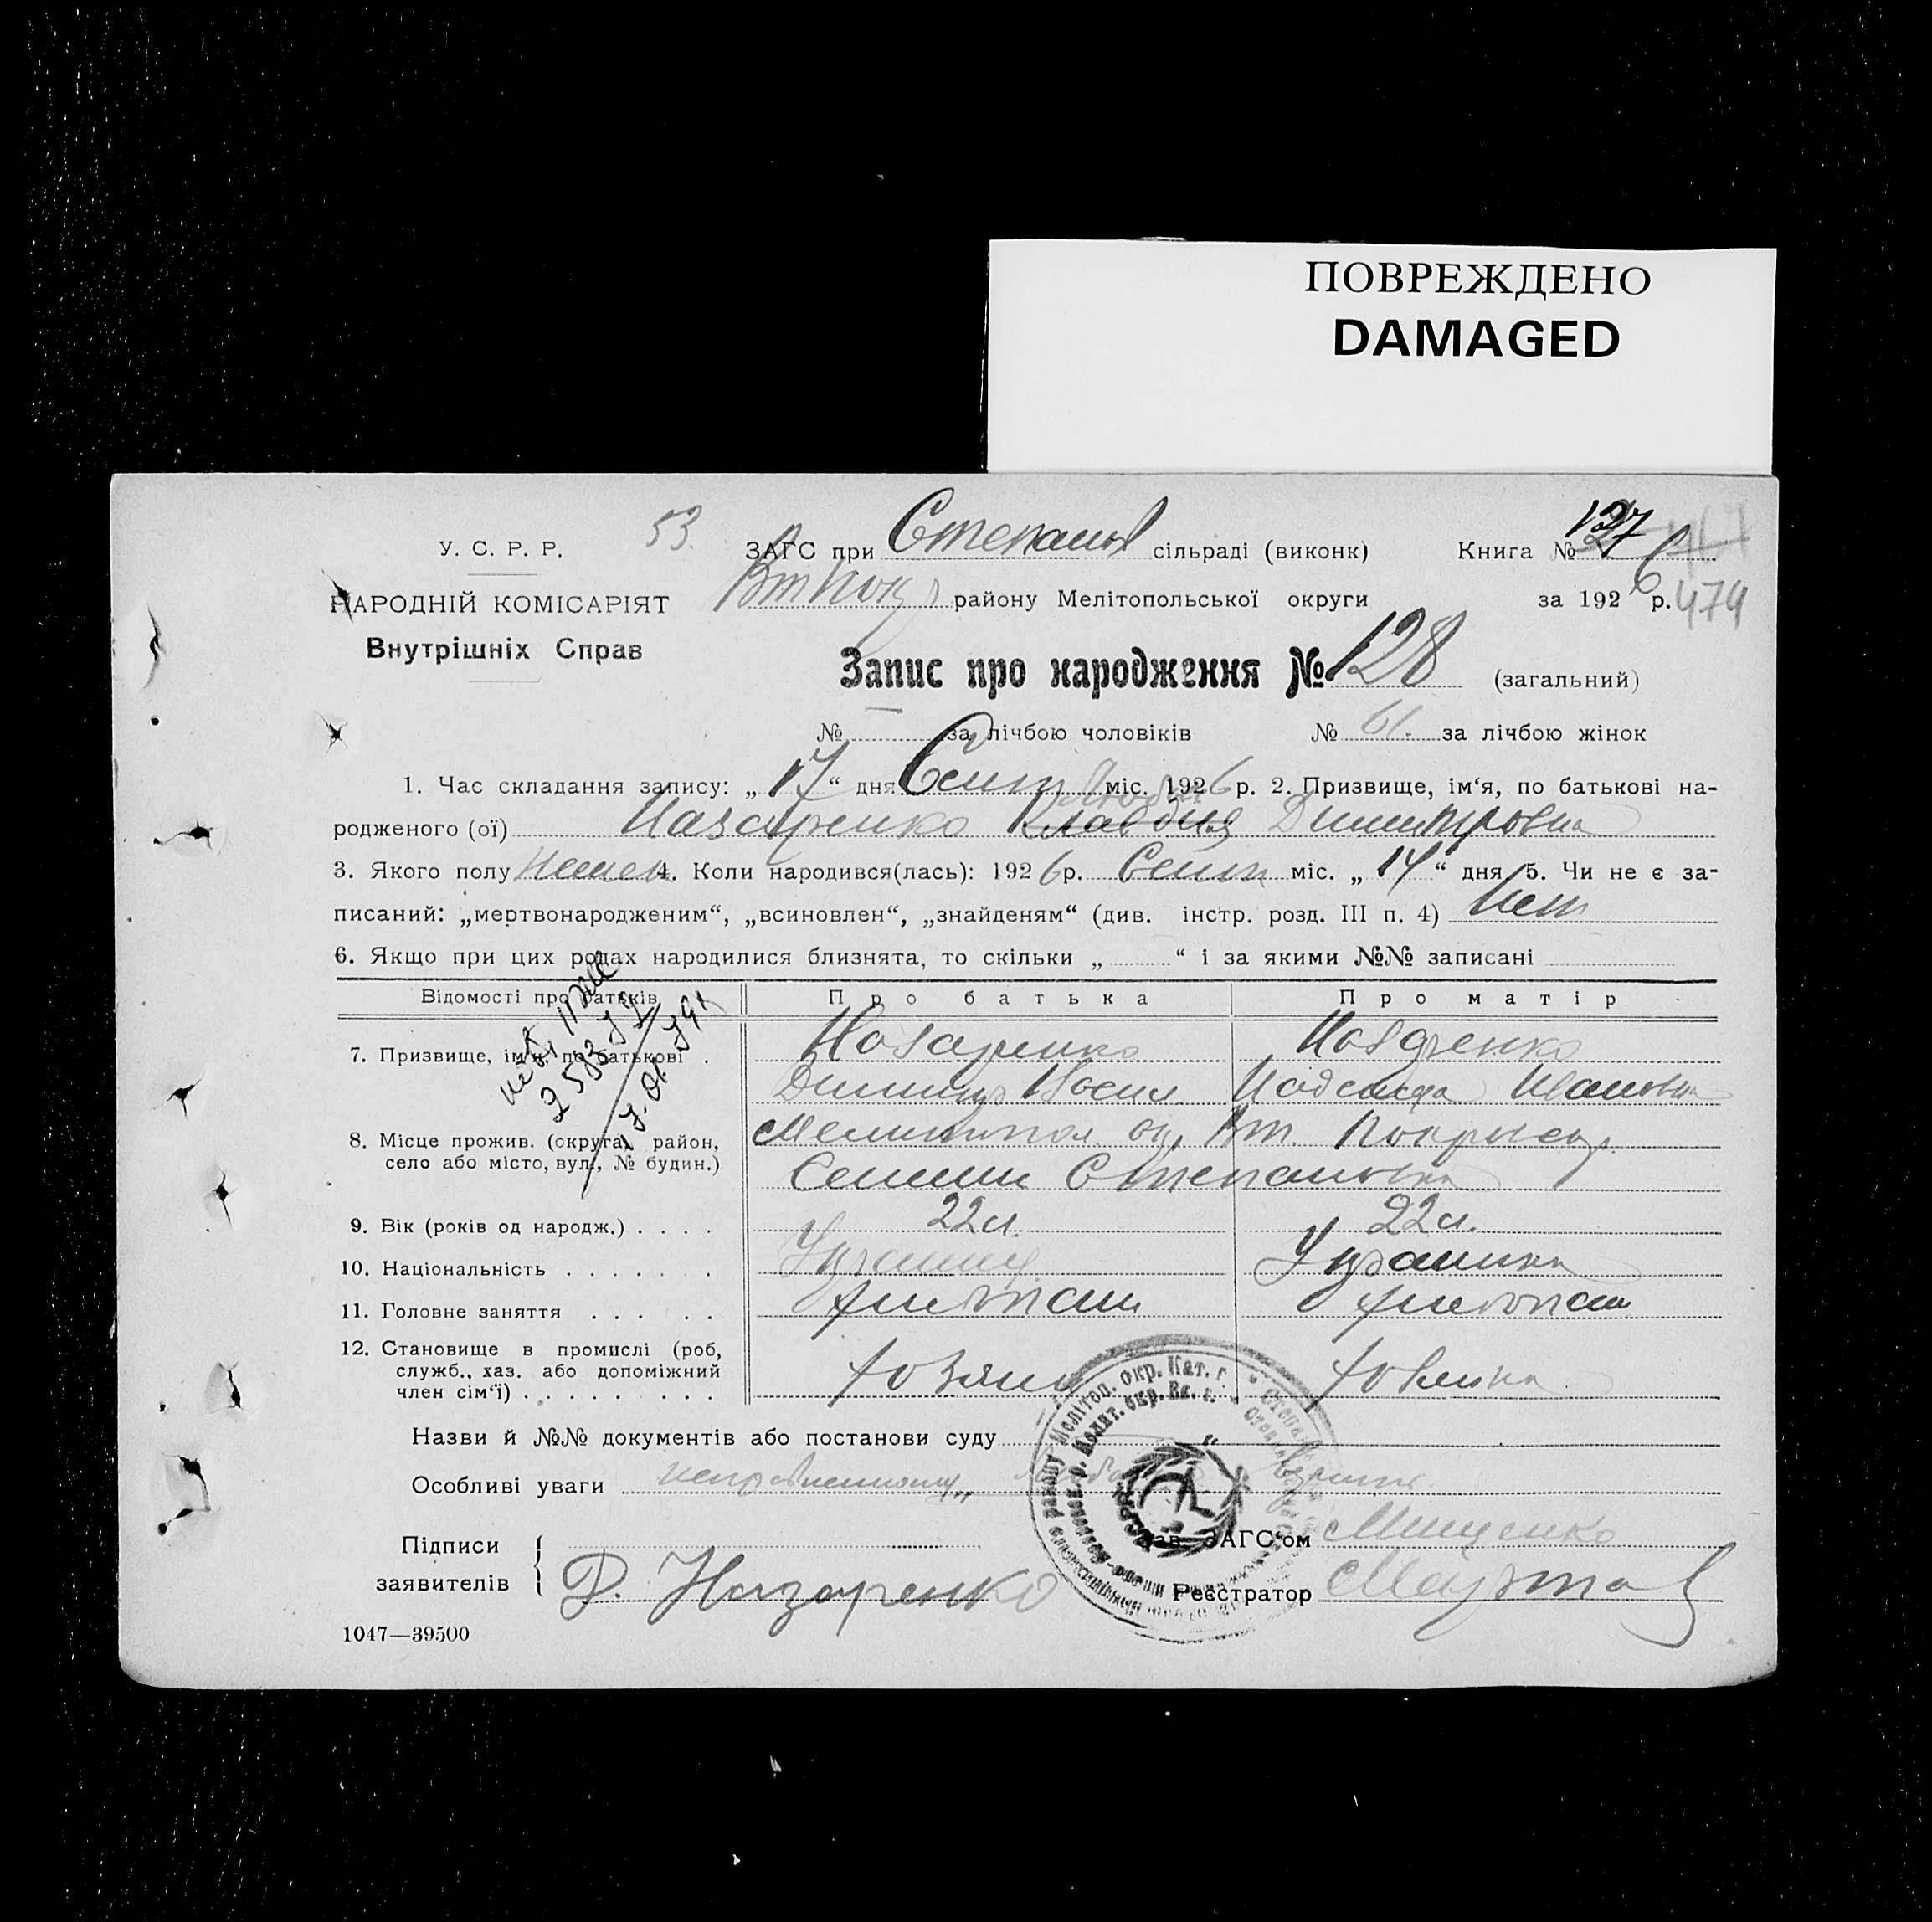 ПОВРЕЖДЕНО
DAMAGED
У. С. Р. Р.
53.
ЗАГС при Степанов сільраді (виконк)
Книга № 127
НАРОДНІЙ КОМІСАРІЯТ
Вт Покр району Мелітопольської округи
за 1926 р. 474
Внутрішніх Справ
Запис про народження № 128 (загальний)
№ — за лічбою чоловіків № 61. за лічбою жінок
1. Час складання запису: „17“ дня Сент міс. 1926 р. 2. Призвище, ім‘я, по батькові на-
родженого (ої) Назаренко Клавдия Димитровна
3. Якого полу женск 4. Коли народився(лась): 1926 р. Сент міс. „14“ дня 5. Чи не є за-
писаний: „мертвонародженим“, „всиновлен“, „знайденям“ (див. інстр. розд. III п. 4) Нет
6. Якщо при цих родах народилися близнята, то скільки „ “ і за якими №№ записані
Відомості про батьків Про батька Про матір
7. Призвище, ім‘я, по батькові . Назаренко Назаренко
Надежда Ивановна
8. Місце прожив. (округа, район, село або місто, вул., № будин.) Мелитопол ок, Вт. Покр
Степановка
9. Вік (років од народж.) . . . . 22 л. 22 л.
10. Національність . . . . . . Украинец Украинка
11. Головне заняття . . . . . хлебопаш хлебопаш
12. Становище в промислі (роб, служб., хаз. або допоміжний член сім‘ї) . . . . . . . . . хозяин хозяйка
Назви й №№ документів або постанови суду
Особливі уваги исправленному верить
Підписи
заявителів
Д. Назаренко
Зав. ЗАГС‘ом Мищенко
Реєстратор
1047—39500